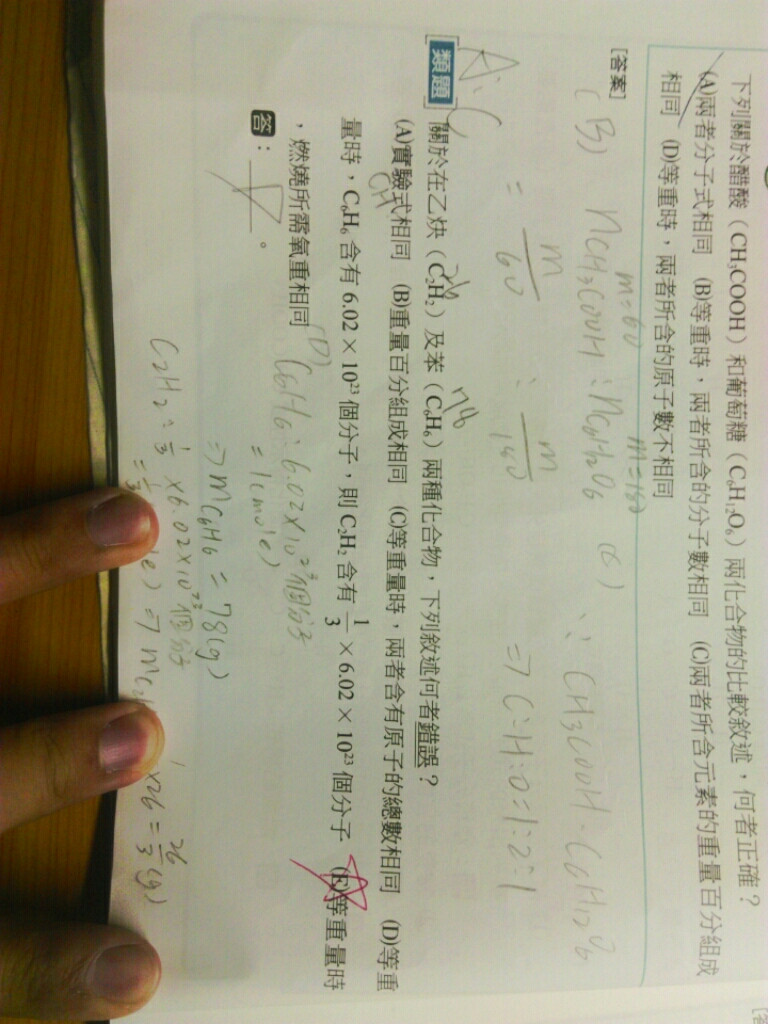 下列關於醋酸（CH₃COOH）和葡萄糖（C₆H₁₂O₆）兩化合物的比較敘述，何者正確？
(A)兩者分子式相同 (B)等重時，兩者所含的分子數相同 (C)兩者所含元素的重量百分組成
相同 (D)等重時，兩者所含的原子數不相同
m=60 m=180
[答案] (B) nCH3COOH : nC6H12O6 (C) ∵ CH3COOH、C6H12O6
= m/60 : m/180 ⇒ C:H:O=1:2:1
A:C
類題 關於在乙炔（C₂H₂）及苯（C₆H₆）兩種化合物，下列敘述何者錯誤？
26 78
(A)實驗式相同 (B)重量百分組成相同 (C)等重量時，兩者含有原子的總數相同 (D)等重
CH
量時，C₆H₆ 含有 6.02 × 10²³ 個分子，則 C₂H₂ 含有 1/3 × 6.02 × 10²³ 個分子 (E)等重量時
，燃燒所需氧重相同
答： 。
(D) C6H6：6.02×10²³個分子
= 1(mole)
⇒ mC6H6 = 78(g)
C2H2：1/3 ×6.02×10²³個分子
×26 = 26/3 (g)